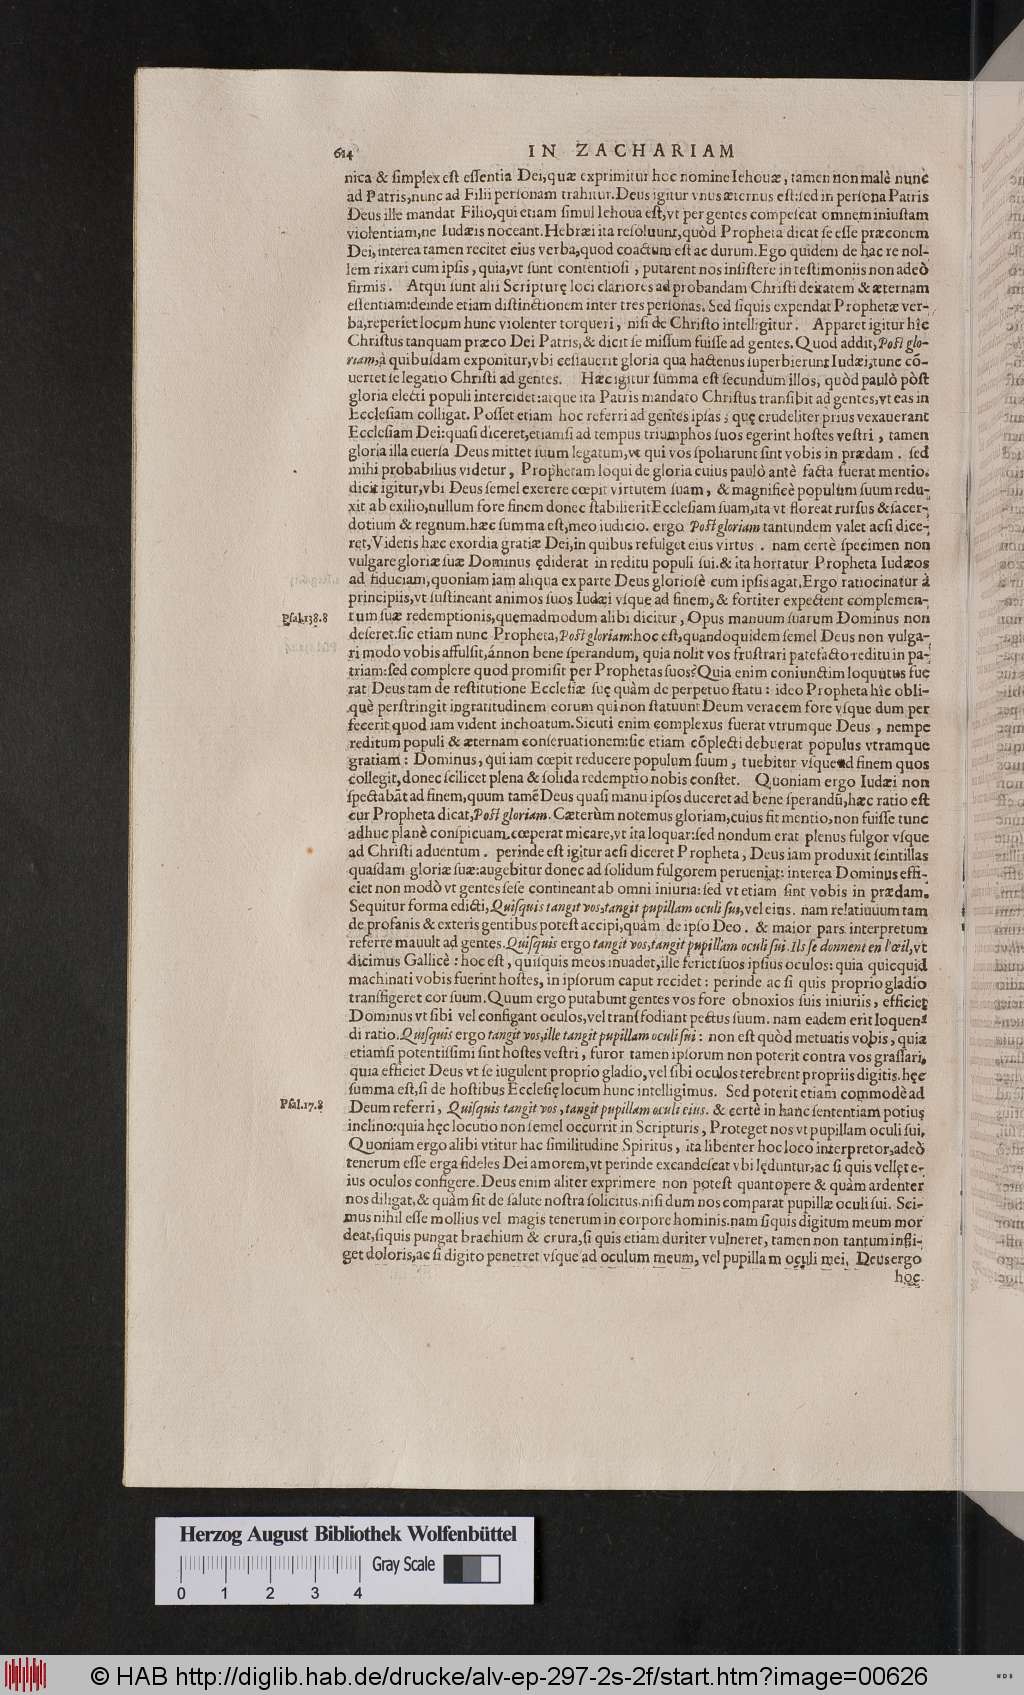 614 IN ZACHARIAM
nica & ſimplex eſt eſſentia Dei, quæ exprimitur hoc nomine Iehouæ, tamen non malè nunc
ad Patris, nunc ad Filii perſonam trahitur. Deus igitur vnus æternus eſt: ſed in perſona Patris
Deus ille mandat Filio, qui etiam ſimul Iehoua eſt, vt per gentes compeſcat omnem iniuſtam
violentiam, ne Iudæis noceant. Hebræi ita reſoluunt, quòd Propheta dicat ſe eſſe præconem
Dei, interea tamen recitet eius verba, quod coactum eſt ac durum. Ego quidem de hac re nol-
lem rixari cum ipſis, quia, vt ſunt contentioſi, putarent nos inſiſtere in teſtimoniis non adeò
firmis. Atqui ſunt alii Scripturę loci clariores ad probandam Chriſti deitatem & æternam
eſſentiam: deinde etiam diſtinctionem inter tres perſonas. Sed ſiquis expendat Prophetæ ver-
ba, reperiet locum hunc violenter torqueri, niſi de Chriſto intelligitur. Apparet igitur hîc
Chriſtus tanquam præco Dei Patris, & dicit ſe miſſum fuiſſe ad gentes. Quod addit, Poſt glo-
riam, à quibuſdam exponitur, vbi ceſſauerit gloria qua hactenus ſuperbierunt Iudæi, tunc cō-
uertet ſe legatio Chriſti ad gentes. Hæc igitur ſumma eſt ſecundum illos, quòd paulò pòſt
gloria electi populi intercidet: atque ita Patris mandato Chriſtus tranſibit ad gentes, vt eas in
Eccleſiam colligat. Poſſet etiam hoc referri ad gentes ipſas, quę crudeliter prius vexauerant
Eccleſiam Dei: quaſi diceret, etiamſi ad tempus triumphos ſuos egerint hoſtes veſtri, tamen
gloria illa euerſa Deus mittet ſuum legatum, vt qui vos ſpoliarunt ſint vobis in prædam. ſed
mihi probabilius videtur, Prophetam loqui de gloria cuius paulò antè facta fuerat mentio.
dicit igitur, vbi Deus ſemel exerere cœpit virtutem ſuam, & magnificè populum ſuum redu-
xit ab exilio, nullum fore finem donec ſtabilierit Eccleſiam ſuam, ita vt floreat rurſus & ſacer-
dotium & regnum. hæc ſumma eſt, meo iudicio. ergo Poſt gloriam tantundem valet acſi dice-
ret, Videtis hæc exordia gratiæ Dei, in quibus refulget eius virtus. nam certè ſpecimen non
vulgare gloriæ ſuæ Dominus ędiderat in reditu populi ſui. & ita hortatur Propheta Iudæos
ad fiduciam, quoniam iam aliqua ex parte Deus glorioſè cum ipſis agat. Ergo ratiocinatur à
principiis, vt ſuſtineant animos ſuos Iudæi vſque ad finem, & fortiter expectent complemen-
Pſal. 138. 8 tum ſuæ redemptionis, quemadmodum alibi dicitur, Opus manuum ſuarum Dominus non
deſeret. ſic etiam nunc Propheta, Poſt gloriam: hoc eſt, quandoquidem ſemel Deus non vulga-
ri modo vobis affulſit, ánnon bene ſperandum, quia nolit vos fruſtrari patefacto reditu in pa-
triam: ſed complere quod promiſit per Prophetas ſuos? Quia enim coniunctim loquutus fue
rat Deus tam de reſtitutione Eccleſiæ ſuę quàm de perpetuo ſtatu: ideo Propheta hîc obli-
què perſtringit ingratitudinem eorum qui non ſtatuunt Deum veracem fore vſque dum per
fecerit quod iam vident inchoatum. Sicuti enim complexus fuerat vtrumque Deus, nempe
reditum populi & æternam conſeruationem: ſic etiam cōplecti debuerat populus vtramque
gratiam: Dominus, qui iam cœpit reducere populum ſuum, tuebitur vſque ad finem quos
collegit, donec ſcilicet plena & ſolida redemptio nobis conſtet. Quoniam ergo Iudæi non
ſpectabāt ad finem, quum tamē Deus quaſi manu ipſos duceret ad bene ſperandū, hæc ratio eſt
cur Propheta dicat, Poſt gloriam. Cæterùm notemus gloriam, cuius fit mentio, non fuiſſe tunc
adhuc planè conſpicuam. cœperat micare, vt ita loquar: ſed nondum erat plenus fulgor vſque
ad Chriſti aduentum. perinde eſt igitur acſi diceret Propheta, Deus iam produxit ſcintillas
quaſdam gloriæ ſuæ: augebitur donec ad ſolidum fulgorem perueniat: interea Dominus effi-
ciet non modò vt gentes ſeſe contineant ab omni iniuria: ſed vt etiam ſint vobis in prædam.
Sequitur forma edicti, Quiſquis tangit vos, tangit pupillam oculi ſui, vel eius. nam relatiuum tam
de profanis & exteris gentibus poteſt accipi, quàm de ipſo Deo. & maior pars interpretum
referre mauult ad gentes. Quiſquis ergo tangit vos, tangit pupillam oculi ſui. Ils ſe donnent en l'œil, vt
dicimus Gallicè: hoc eſt, quiſquis meos inuadet, ille feriet ſuos ipſius oculos: quia quicquid
machinati vobis fuerint hoſtes, in ipſorum caput recidet: perinde ac ſi quis proprio gladio
tranſfigeret cor ſuum. Quum ergo putabunt gentes vos fore obnoxios ſuis iniuriis, efficiet
Dominus vt ſibi vel configant oculos, vel tranſfodiant pectus ſuum. nam eadem erit loquen-
di ratio. Quiſquis ergo tangit vos, ille tangit pupillam oculi ſui: non eſt quòd metuatis vobis, quia
etiamſi potentiſſimi ſint hoſtes veſtri, furor tamen ipſorum non poterit contra vos graſſari,
quia efficiet Deus vt ſe iugulent proprio gladio, vel ſibi oculos terebrent propriis digitis. hęc
ſumma eſt, ſi de hoſtibus Eccleſię locum hunc intelligimus. Sed poterit etiam commodè ad
Pſal. 17. 8 Deum referri, Quiſquis tangit vos, tangit pupillam oculi eius. & certè in hanc ſententiam potius
inclino: quia hęc locutio non ſemel occurrit in Scripturis, Proteget nos vt pupillam oculi ſui.
Quoniam ergo alibi vtitur hac ſimilitudine Spiritus, ita libenter hoc loco interpretor, adeò
tenerum eſſe erga fideles Dei amorem, vt perinde excandeſcat vbi lęduntur, ac ſi quis vellet e-
ius oculos configere. Deus enim aliter exprimere non poteſt quantopere & quàm ardenter
nos diligat, & quàm ſit de ſalute noſtra ſolicitus, niſi dum nos comparat pupillæ oculi ſui. Sci-
mus nihil eſſe mollius vel magis tenerum in corpore hominis. nam ſiquis digitum meum mor
deat, ſiquis pungat brachium & crura, ſi quis etiam duriter vulneret, tamen non tantum infli-
get doloris, ac ſi digito penetret vſque ad oculum meum, vel pupillam oculi mei. Deus ergo
hoc
Herzog August Bibliothek Wolfenbüttel
Gray Scale
0 1 2 3 4
© HAB http://diglib.hab.de/drucke/alv-ep-297-2s-2f/start.htm?image=00626